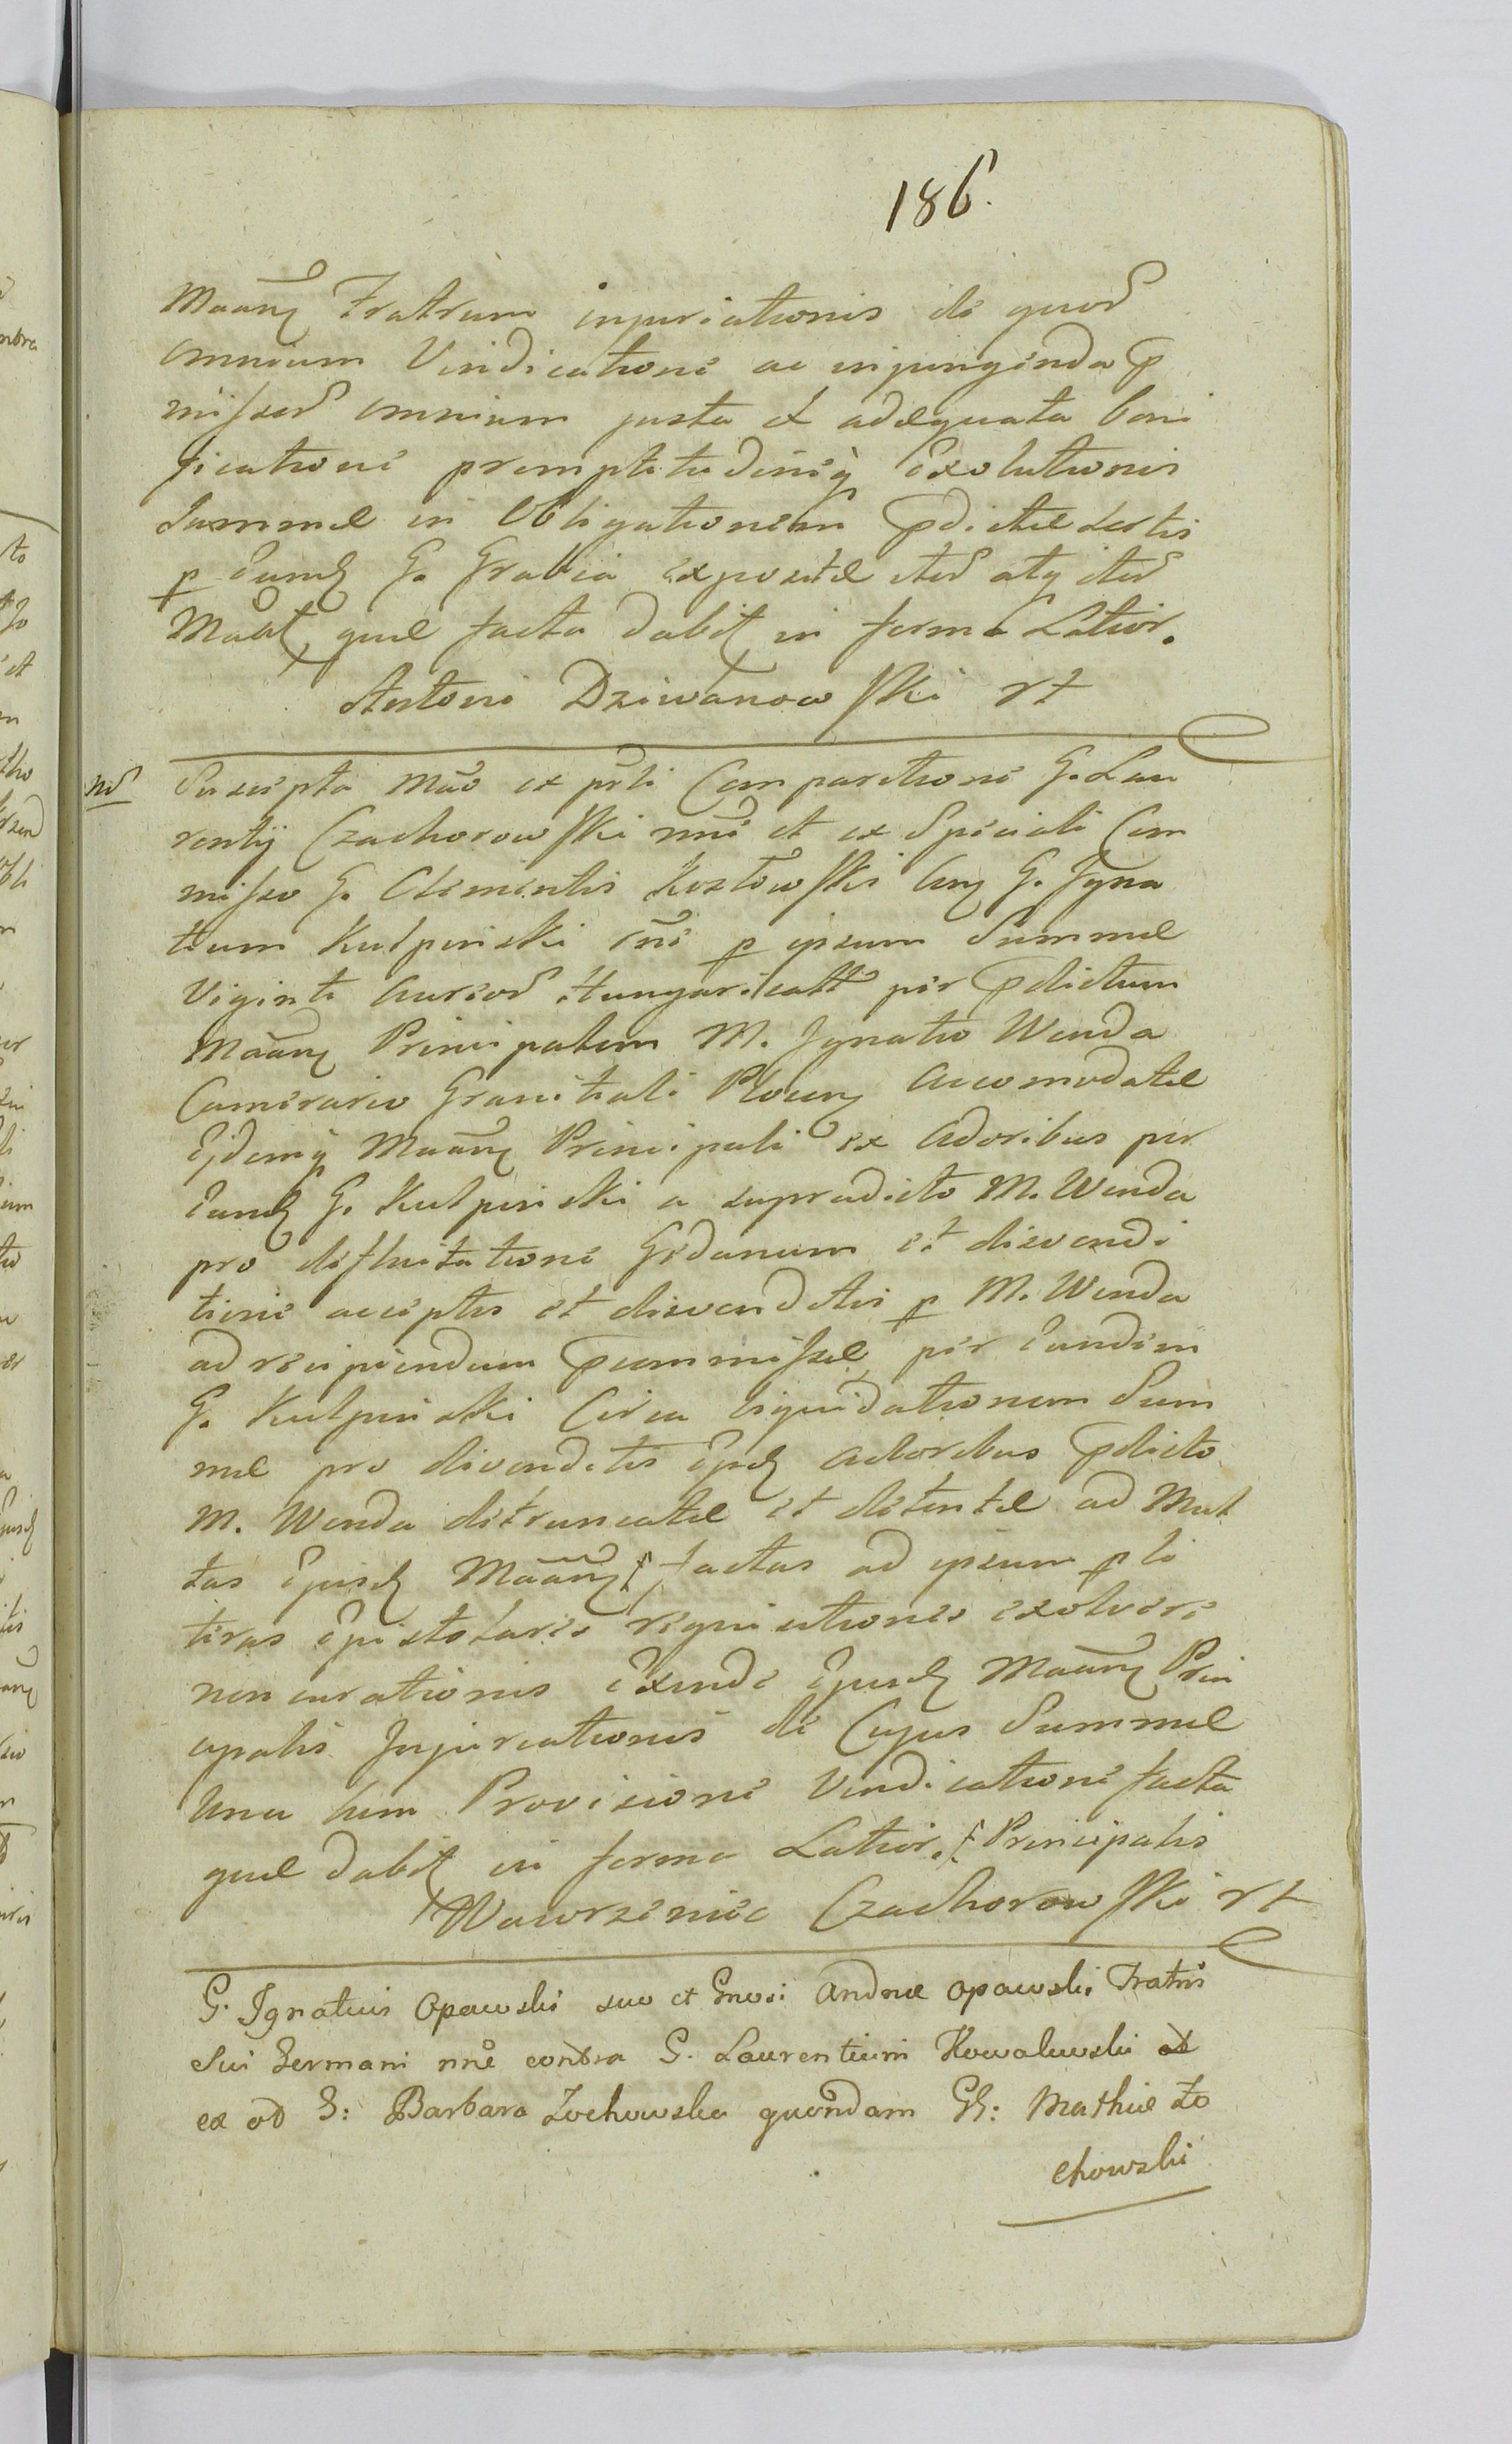 186.
Maanz Fratrum injuriationis de quor
omnium Vindicatione ac injungenda p
missor omnium justa et adaequata boni
ficatione promptitudineq exolutionis
Summae in Obligationem pdictae sortis
p eund G. Grabia expositae iter atq iter
Maat, quae facta dabit in forma Latior.
Antoni Dziwanowski rt
Nr
Suscepta Mao ex psli Comparitione G. Lau
rentij Czachorowski nne et ex Speciali Com
misso G. Clementis Kozłowski Crz G. Igna
tium Kulpinski rne p ipsum Summae
Viginti Aureor Hungaricalt per pdictum
Maanz Principalem M. Ignatio Wenda
Camerario Granitiali Plocen Accomodatae
Ejdemq Maanz Principali ex Adoribus per
eund G. Kulpinski a supradicto M. Wenda
pro defluitatione Gedanum et divendi
tione acceptis et divenditis p M. Wenda
ad recipiendum permissae, per eundem
G. Kulpinski Circa liquidationem Sum
mae pro divenditis Ijsd Adoribus pdicto
M. Wenda detruncatae et detentae ad Mul
tas Ejusd Maanz factas ad ipsum p li
teras Epistolares requisitiones exolvere
non curationis Exinde Ejusd Maanz Prin
cipalis Injuriationis de Cujus Summae
Una cum Provisione Vindicatione facta
quae dabit in forma Latior. Principalis
Wawrzeniec Czachorowski rt
G. Ignatius Opawski suo et Gnosi Andreae Opawski Fratris
Sui Germani nne contra G. Laurentium Kowalewski
ex od G: Barbara Zochowska quondam GG: Mathiae Zo
chowski